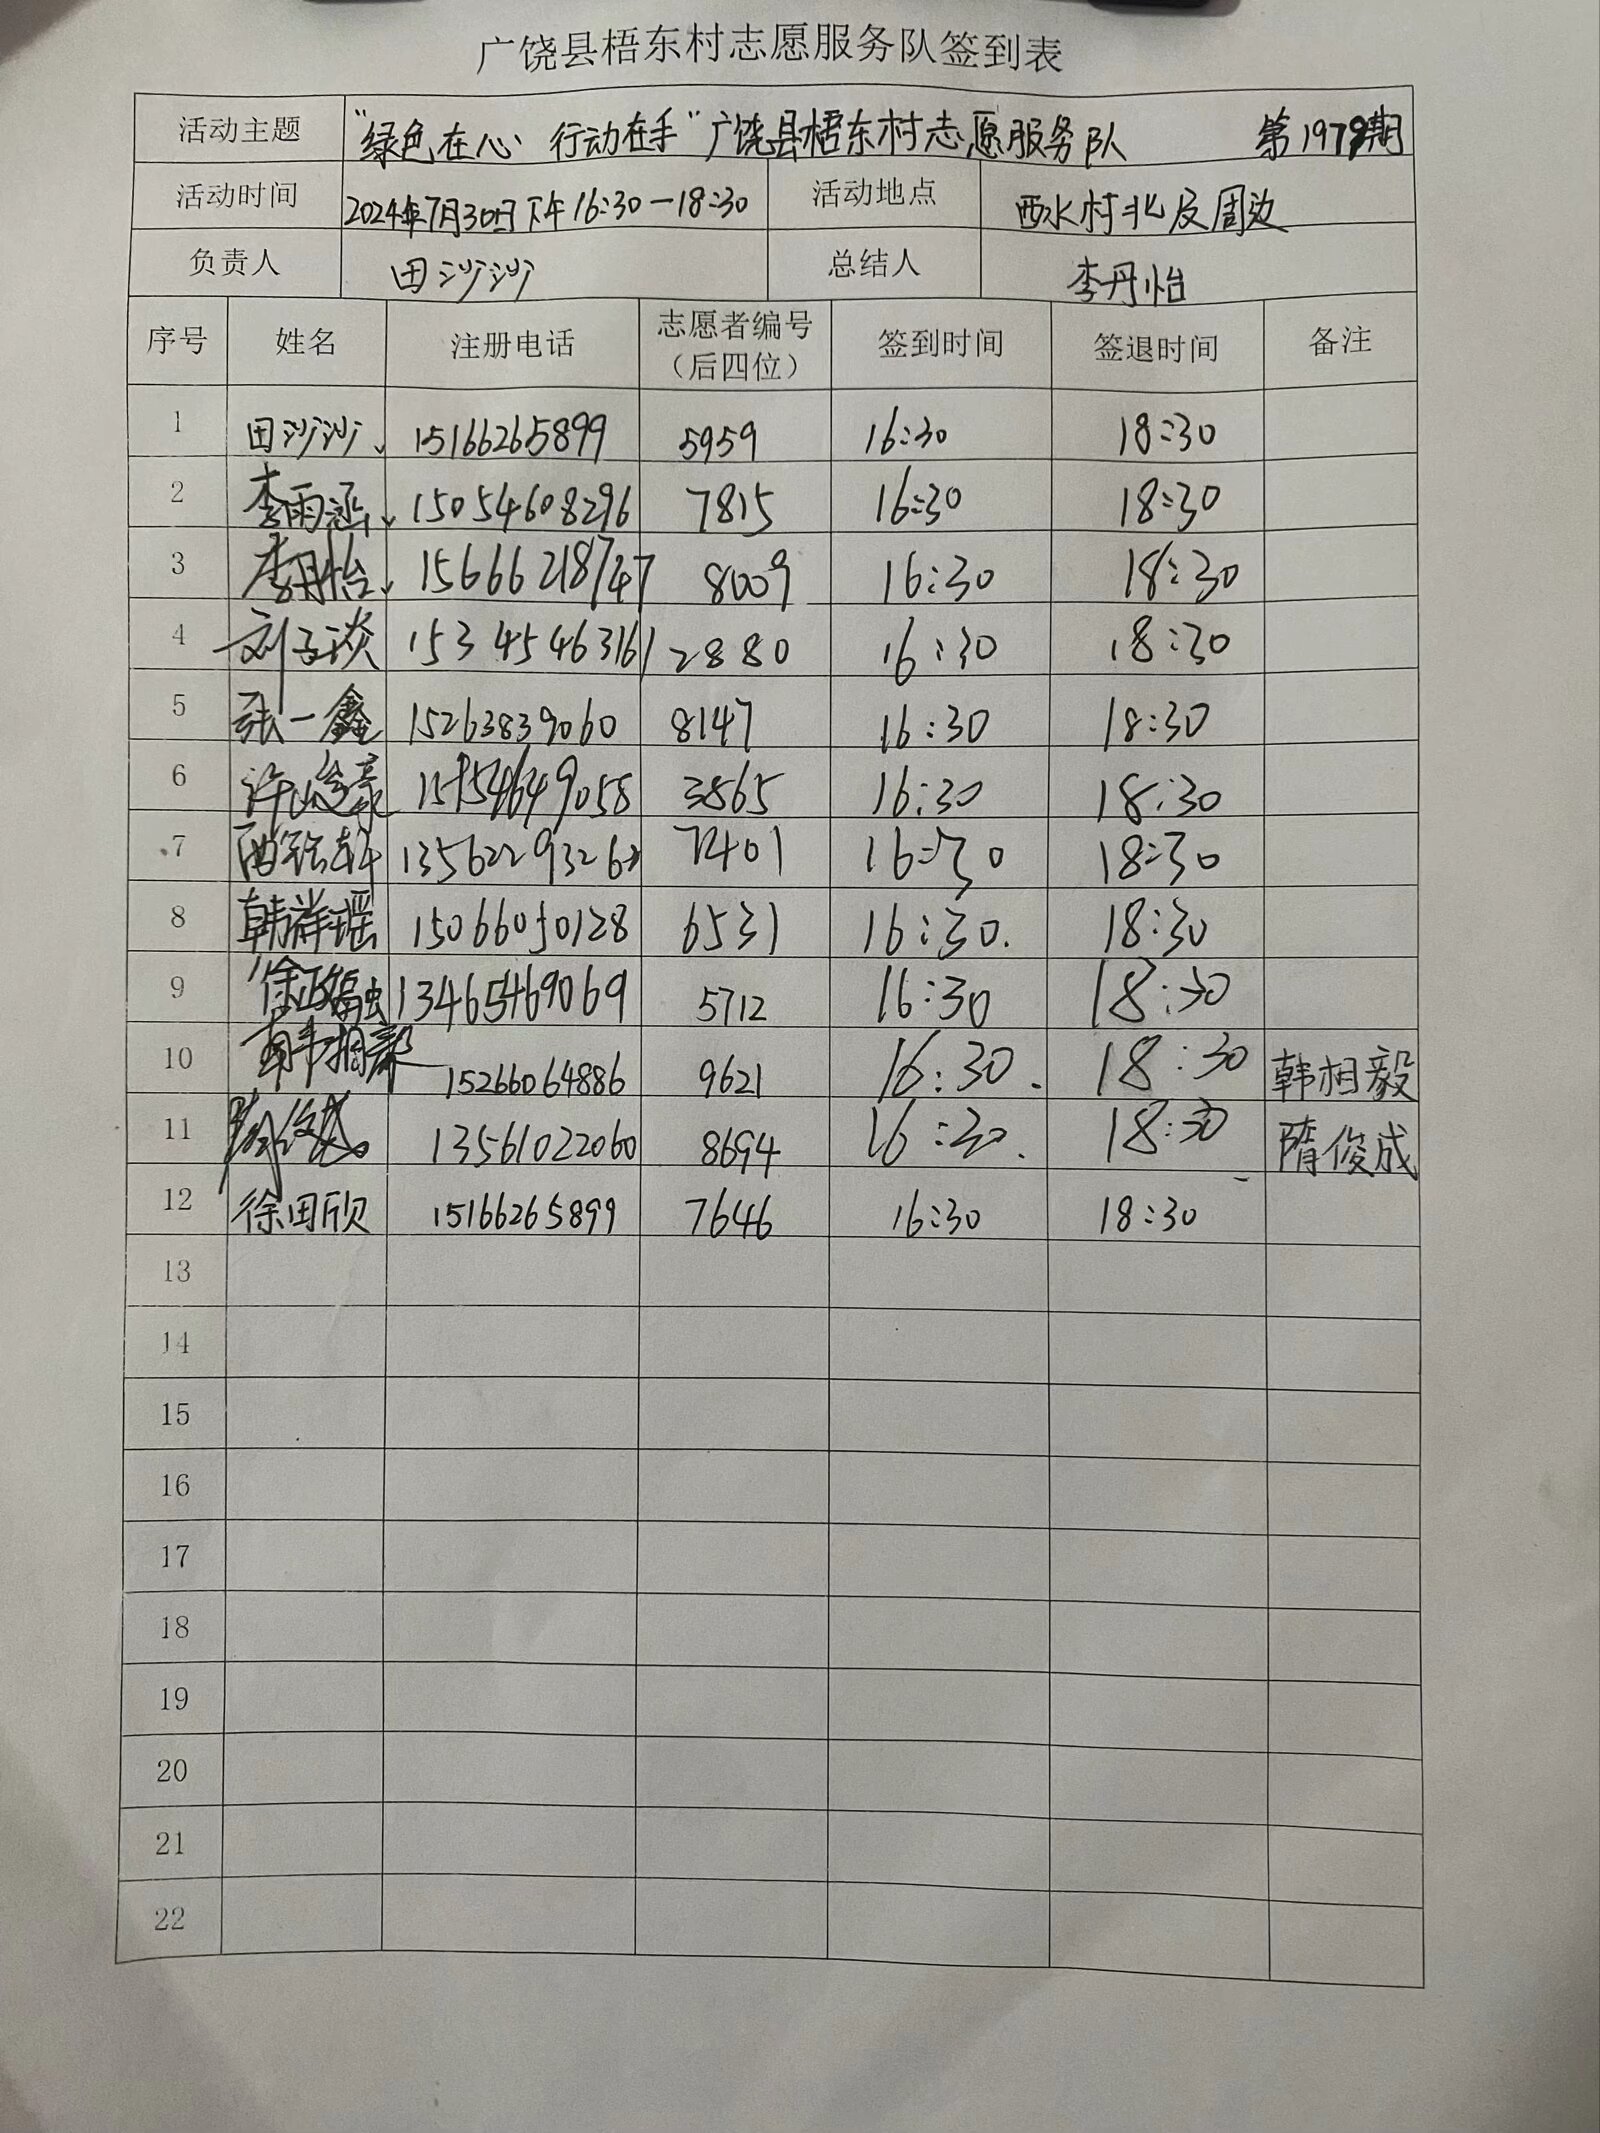 广饶县梧东村志愿服务队签到表
活动主题 "绿色在心 行动在手"广饶县梧东村志愿服务队 第1979期
活动时间 2024年7月30日下午16:30—18:30 活动地点 西水村北及周边
负责人 田沙沙 总结人 李丹怡
序号 姓名 注册电话 志愿者编号（后四位） 签到时间 签退时间 备注
1 田沙沙 15166265899 5959 16:30 18:30
2 李雨涵 15054608296 7815 16:30 18:30
3 李丹怡 15666218747 8009 16:30 18:30
4 刘子谈 15345463161 2880 16:30 18:30
5 张一鑫 15263839060 8147 16:30 18:30
6 许峻豪 3865 16:30 18:30
7 7401 16:30 18:30
8 韩祥瑶 15066050128 6531 16:30 18:30
9 13465469069 5712 16:30 18:30
10 韩相毅 15266064886 9621 16:30. 18:30 韩相毅
11 隋俊成 13561022060 8694 16:30. 18:30 隋俊成
12 徐田欣 15166265899 7646 16:30 18:30
13
14
15
16
17
18
19
20
21
22